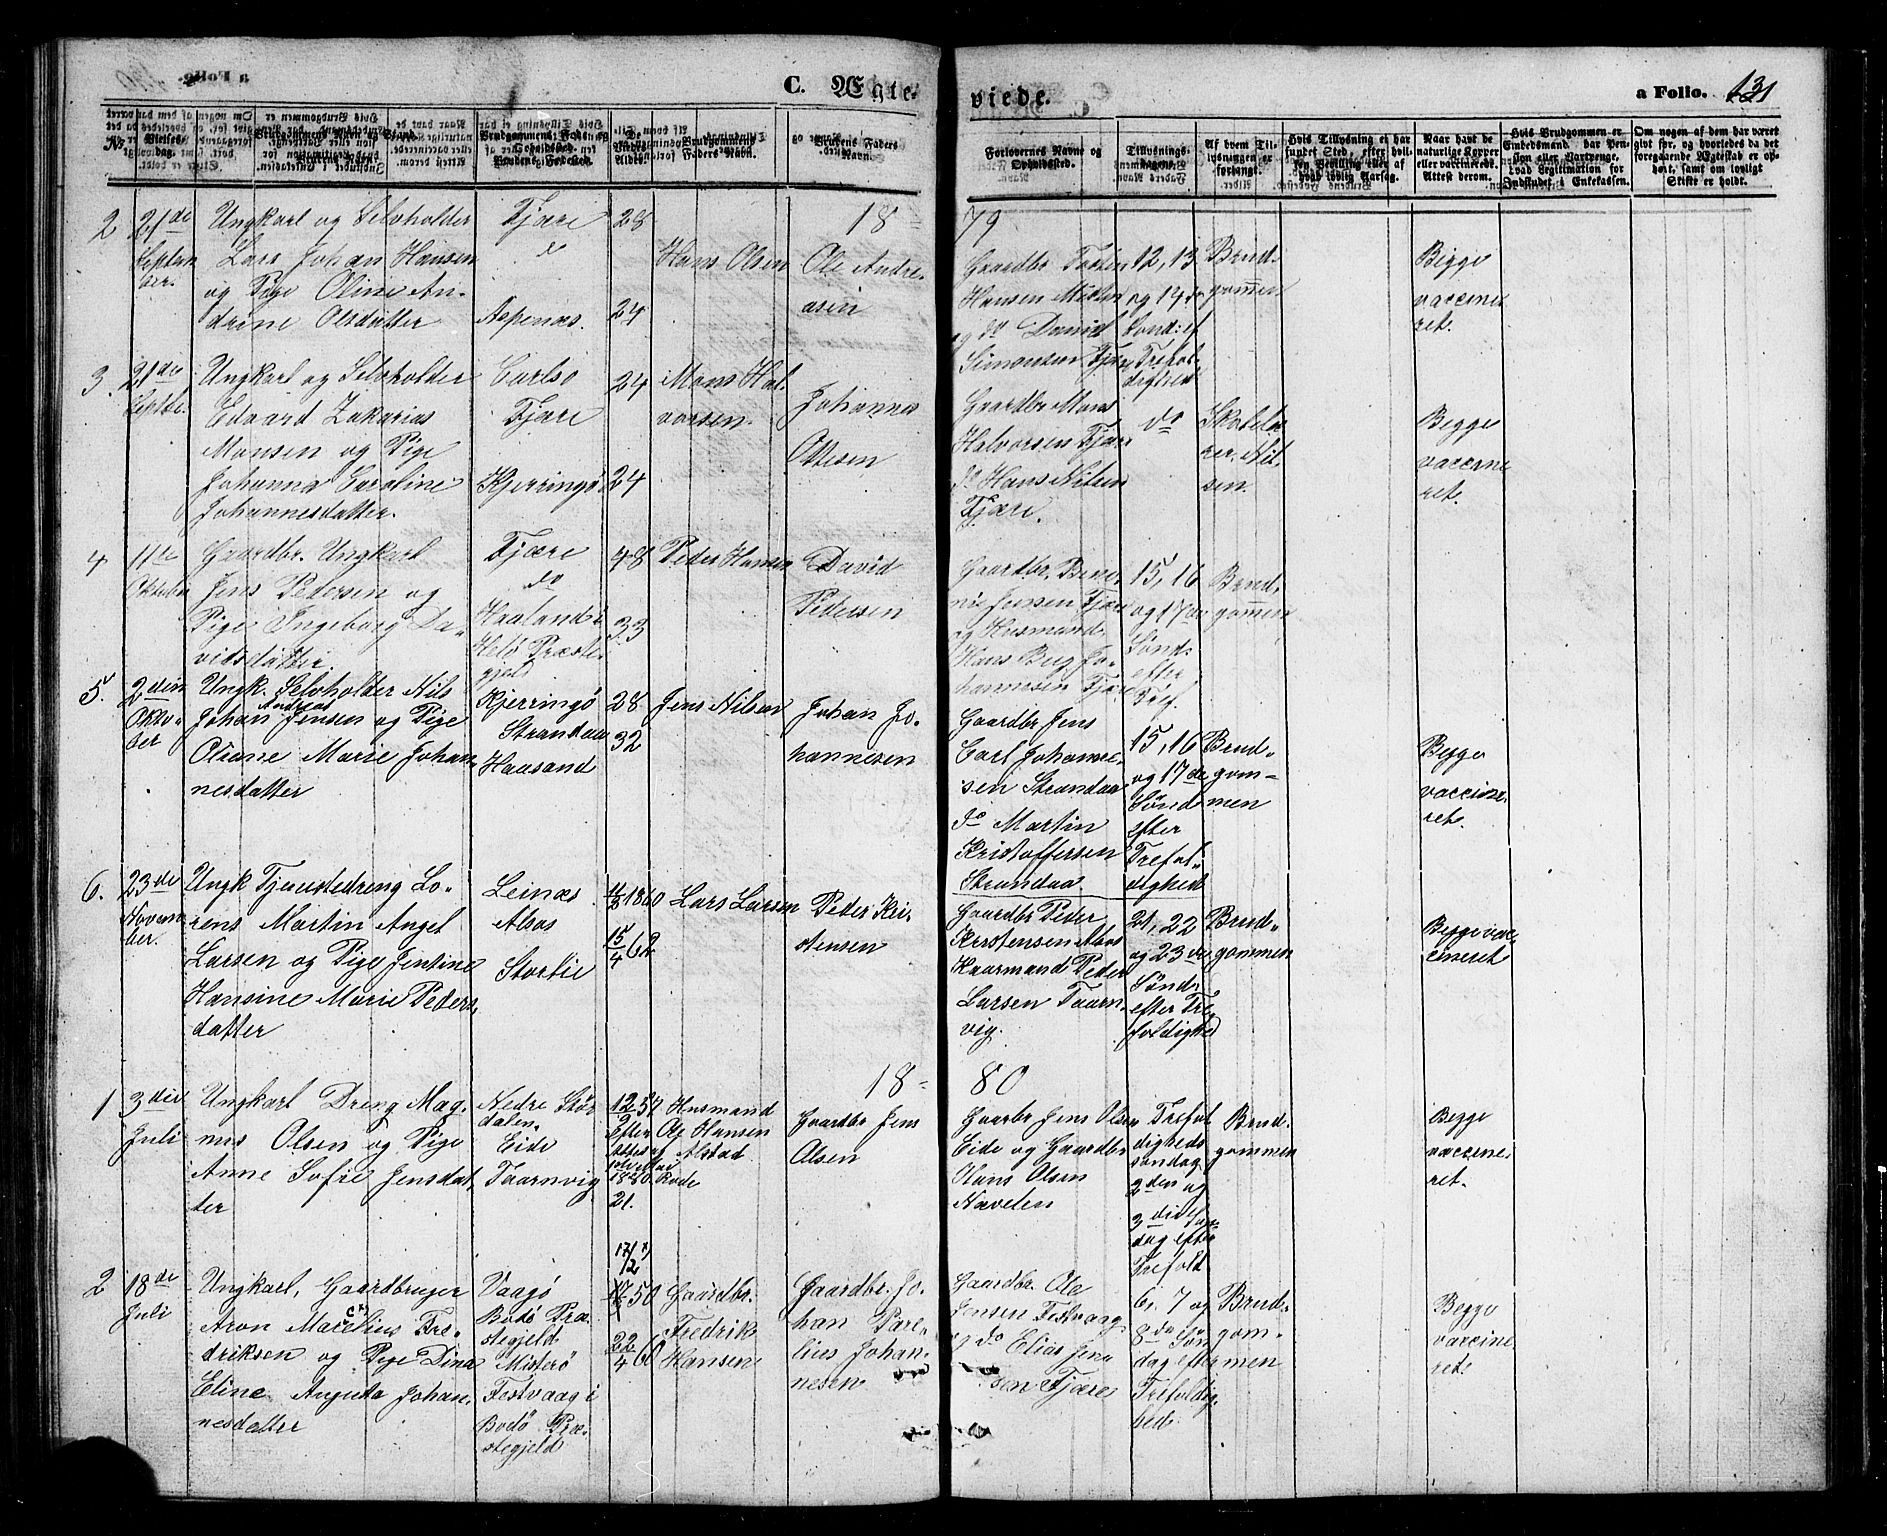 C. Ægte-
viede.
a Folio. 131
No
Vielses-
dag.
Brudgommens Navn og Stand.
Brudens Navn.
Brudgommens Fødested og Opholdssted.
Brudens Fødested.
De Viedes Alder.
Brudgommens Faders Navn.
Brudens Faders Navn.
Forlovernes Navne og Opholdssted.
Tillysnings-
dagene.
Af hvem Til-
lysningen er
forlangt.
Hvis Tillysning ei har
fundet Sted, efter hvil-
ken Bevilling eller af
hvad lovlig Aarsag.
Naar havt de
naturlige Kopper
eller vaccinerede.
Attest derom.
Hvis Brudgommen er
Embedsmand, har Pen-
sion eller Vartpenge,
hvad Legitimation for
Indskudet i Enkekassen.
Om nogen af dem har været
gift før, og hvorledes da det
foregaaende Ægteskab er op-
hørt, samt om lovligt
Skifte er holdt.
18 79
2 21de Septem ber.
Ungkarl og Selvholder
Lars Johan Hansen
og Pige Oline An-
drine Olsdatter
Fjære
do
Aspenæs.
28
24
Hans Olsen
Ole Andre-
asen
Gaardbr Tosten
Hansen Misten
og do Daniel
Simonsen Fjære
12, 13
og 14de
Sønd: ef
Trefol-
dighed
Brud-
gommen
Begge
vaccine
ret.
3. 21de Septbr.
Ungkarl og Selvholder
Edvard Zakarias
Monsen og Pige
Johanna Caroline
Johannesdatter.
Carlsø
Fjære
Kjerringø
24
24
Mons Hal-
vorsen.
Johannes
Ottesen
Gaardbr Mons
Halvorsen Fjære
do Hans Nilsen
Fjære.
do
Skolelæ
rer Nil-
sen.
Begge
vaccine
ret.
4 11te Oktober
Gaardbr. Ungkarl
Jens Pedersen og
Pige Ingeborg Da-
vidsdatter.
Fjære
do
Haaland i
Helø Præste-
gjeld
48
33
Peder Hansen
David
Pedersen
Gaardbr. Bene-
Jensen Fjære
og Husmand
Hans Berg Jo-
hannesen Fjære
15, 16
og 17de
Sønd.
efter
Tref.
Brud-
gommen
5. 2den Okto- ber
Ungk. Selvholder Nils
Johan Andreas Jensen og Pige
Olianne Marie Johan-
nesdatter
Kjerringø
Strandaa
Haasand
28
32
Jens Nilsen
Johan Jo-
hannesen
Gaardbr Jens
Carl Johanne-
sen Strandaa
do Martin
Kristoffersen
Strandaa.
15, 16
og 17de
Sønd
efter
Trefol-
dighed
Brud-
gom-
men
Begge
vaccine-
ret.
6. 23de Novem- ber.
Ungk Tjenestedreng Lo-
rens Martin Angel
Larsen og Pige Jentine
Hansine Marie Peders-
datter
Leinæs
Alsos
Storlie
1860
15/4 62
Lars Larsen
Peder Kri-
stensen
Gaardbr Peder
Kristensen Alsos
Kaarmand Peder
Larsen Taarn-
vig.
21, 22
og 23de
Sønd:
efter Tre
foldighed
Brud-
gommen
Begge vac-
cineret
18 80
1 3die Juli
Ungkarl Dreng Mag-
nus Olsen og Pige
Anne Sofie Jensdat-
ter
Nedre Stør
dalen.
Eide
Taarnvig
12/2 57
Efter
Attest af
1880.
21.
Husmand
Ole Hansen
Alstad
Røde
Gaardbr Jens
Olsen
Gaardbr Jens Olsen
Eide og Gaardbr
Hans Olsen
Navelen
Trefol
digheds
søndag
2den og
3die Søn-
dag efter
Trefold
Brud-
gommen
Begge
vaccine-
ret.
2 18de Juli
Ungkarl, Gaardbruger
Aron Marcelius Fre-
driksen og Pige Dina
Eline Augusta Johan-
nesdatter
Vaagø
Bodø Præ-
stegjeld
Misterø
Festvaag i
Bodø Præ-
stegjeld
17/2
50
22/4 60
Gaardbr.
Fredrik
Hansen
Gaardbr. Jo-
han Pare-
lius Johan-
nesen
Gaardbr. Ole
Jensen Festvaag
og do Elias Jen-
sen Fjære
6, 7 og
8de Søn
dag efter
Trefoldig-
hed.
Brud-
gom-
men
Begge
vaccine
ret.